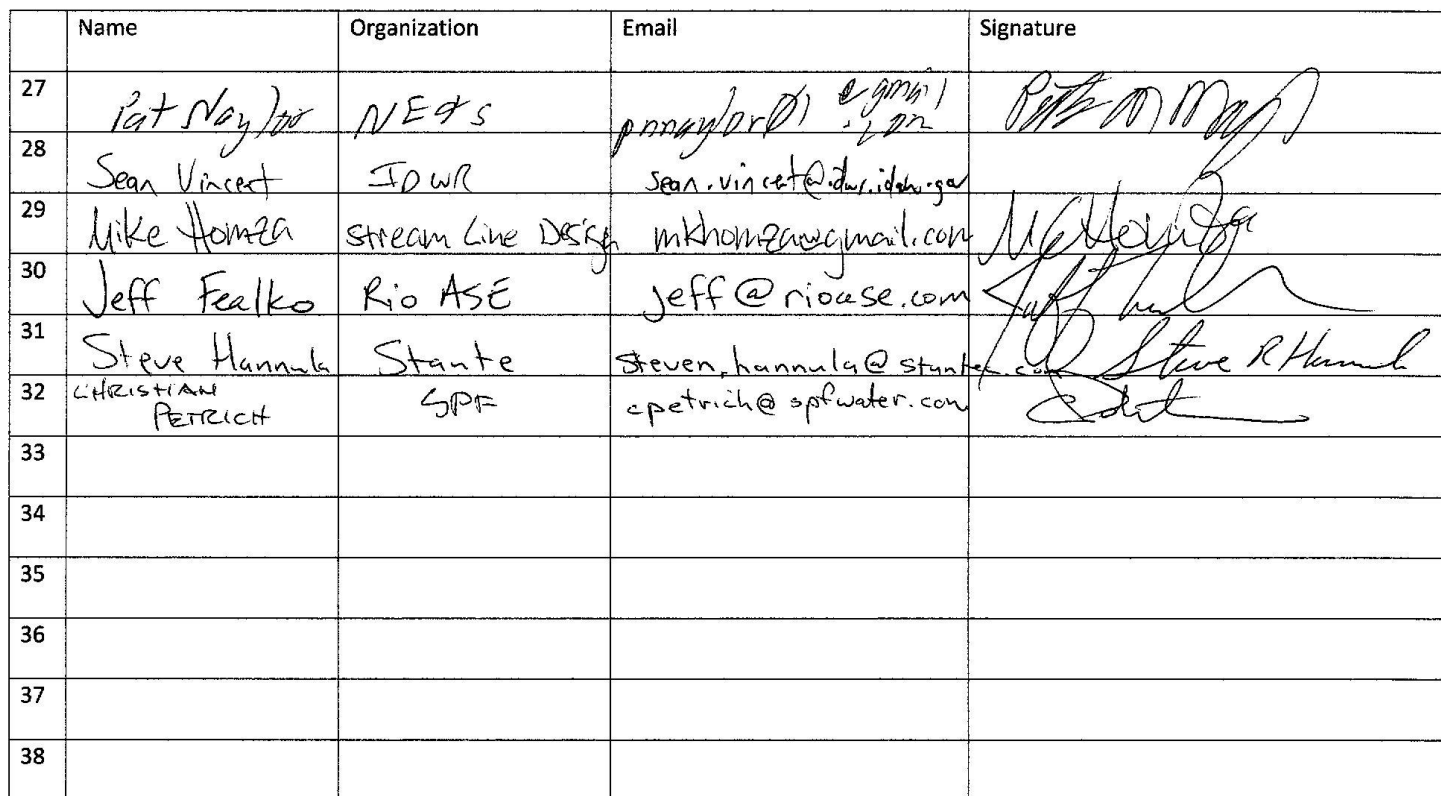 Name Organization Email Signature
27 Pat Naylor
28 Sean Vincent IDWR sean.vincent@idwr.idaho.gov
29 Mike Homza Stream Line Design mkhomza@gmail.com
30 Jeff Fealko Rio ASE jeff@rioase.com
31 Steve Hannula Stante steven.hannula@stantec.com Steve R Hannula
32 CHRISTIAN PETRICH SPF cpetrich@spfwater.com
33
34
35
36
37
38